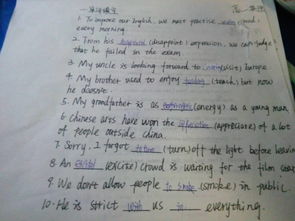 一.单词填空 高一英语
1. To improve our English, we must practise aloud
every morning.
2. From his disappointed (disappoint) expression, we can judge
that he failed in the exam
3. My uncle is looking forward to (visit) Europe
4. My brother used to enjoy teaching (teach), but now
he doesn't.
5. My grandfather is as energetic (energy) as a young man
6. Chinese arts have won the (appreciate) of a lot
of people outside China.
7. Sorry, I forgot (turn) off the light before leaving
8. An excited (excite) crowd is waiting for the film star
9. We don't allow people to smoke (smoke) in public.
10. He is strict with us in everything.